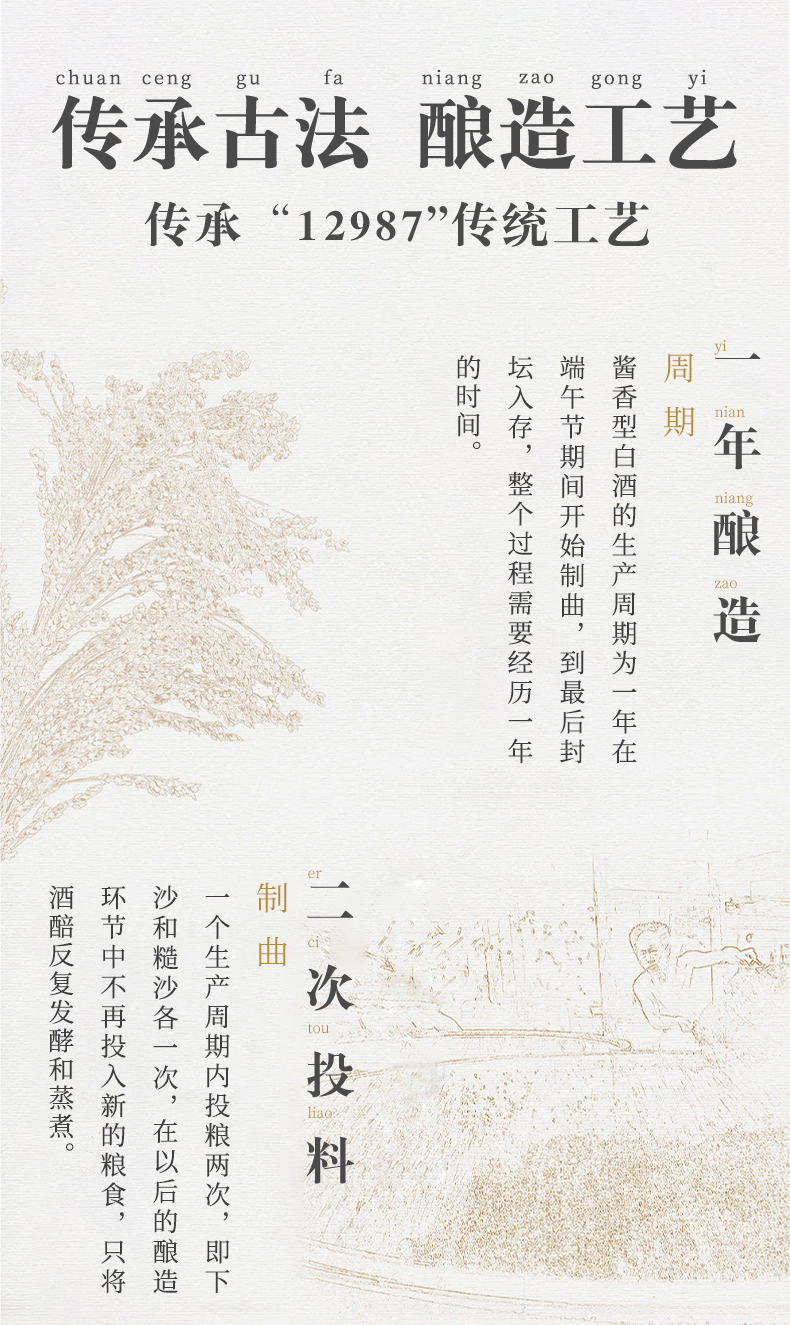 chuan ceng gu fa niang zao gong yi
传承古法 酿造工艺
传承“12987”传统工艺
yi nian niang zao
一年酿造
周期
酱香型白酒的生产周期为一年在
端午节期间开始制曲，到最后封
坛入存，整个过程需要经历一年
的时间。
er ci tou liao
二次投料
制曲
一个生产周期内投粮两次，即下
沙和糙沙各一次，在以后的酿造
环节中不再投入新的粮食，只将
酒醅反复发酵和蒸煮。